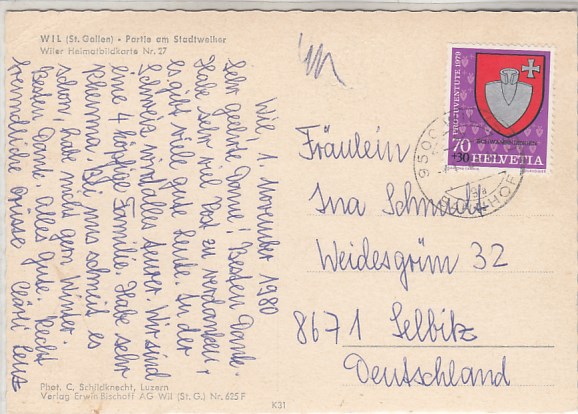 WIL (St. Gallen) • Partie am Stadtweiher
Wiler Heimatbildkarte Nr. 27
Wil, 1 November 1980
Sehr geehrte Dame! Besten Dank.
Habe sehr viel Post zu verdanken &
es gibt viele gute Leute. In der
Schweiz wird alles teurer. Wir sind
eine 4 köpfige Familie. Habe sehr
Rheuma. Bei uns schneit es
schon, habe nicht gern Winter.
Besten Dank. Alles gute. Recht
freundliche Grüsse
PRO JUVENTUTE 1979
70
+30
HELVETIA
9500
BAHNHOF
Fräulein
Ina Schmidt
Weidesgrün 32
8671 Selbitz
Deutschland
Phot. C. Schildknecht, Luzern
Verlag Erwin Bischoff AG Wil (St. G.) Nr. 625 F
K31